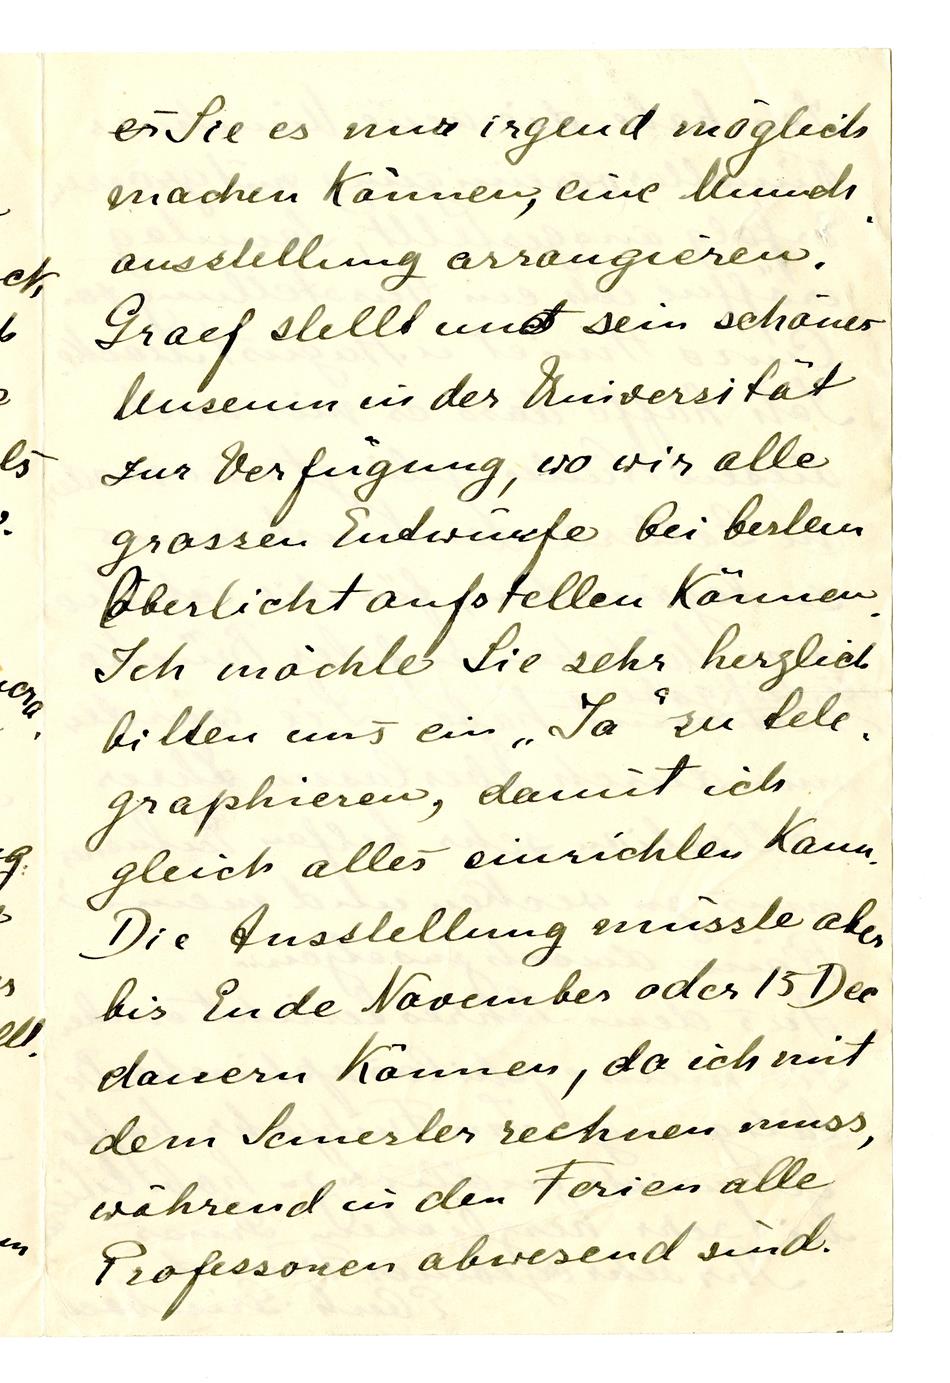 er Sie es nur irgend möglich
machen können, eine Munch-
ausstellung arrangieren.
Graef stellt und sein schönes
Museum in der Universität
zur Verfügung, wo wir alle
grossen Entwürfe bei bestem
Oberlicht aufstellen können.
Ich möchte Sie sehr herzlich
bitten uns ein „Ja“ zu tele-
graphieren, damit ich
gleich alles einrichten kann.
Die Ausstellung müsste aber
bis Ende November oder 15 Dec
dauern können, da ich mit
dem Semester rechnen muss,
während in den Ferien alle
Professoren abwesend sind.